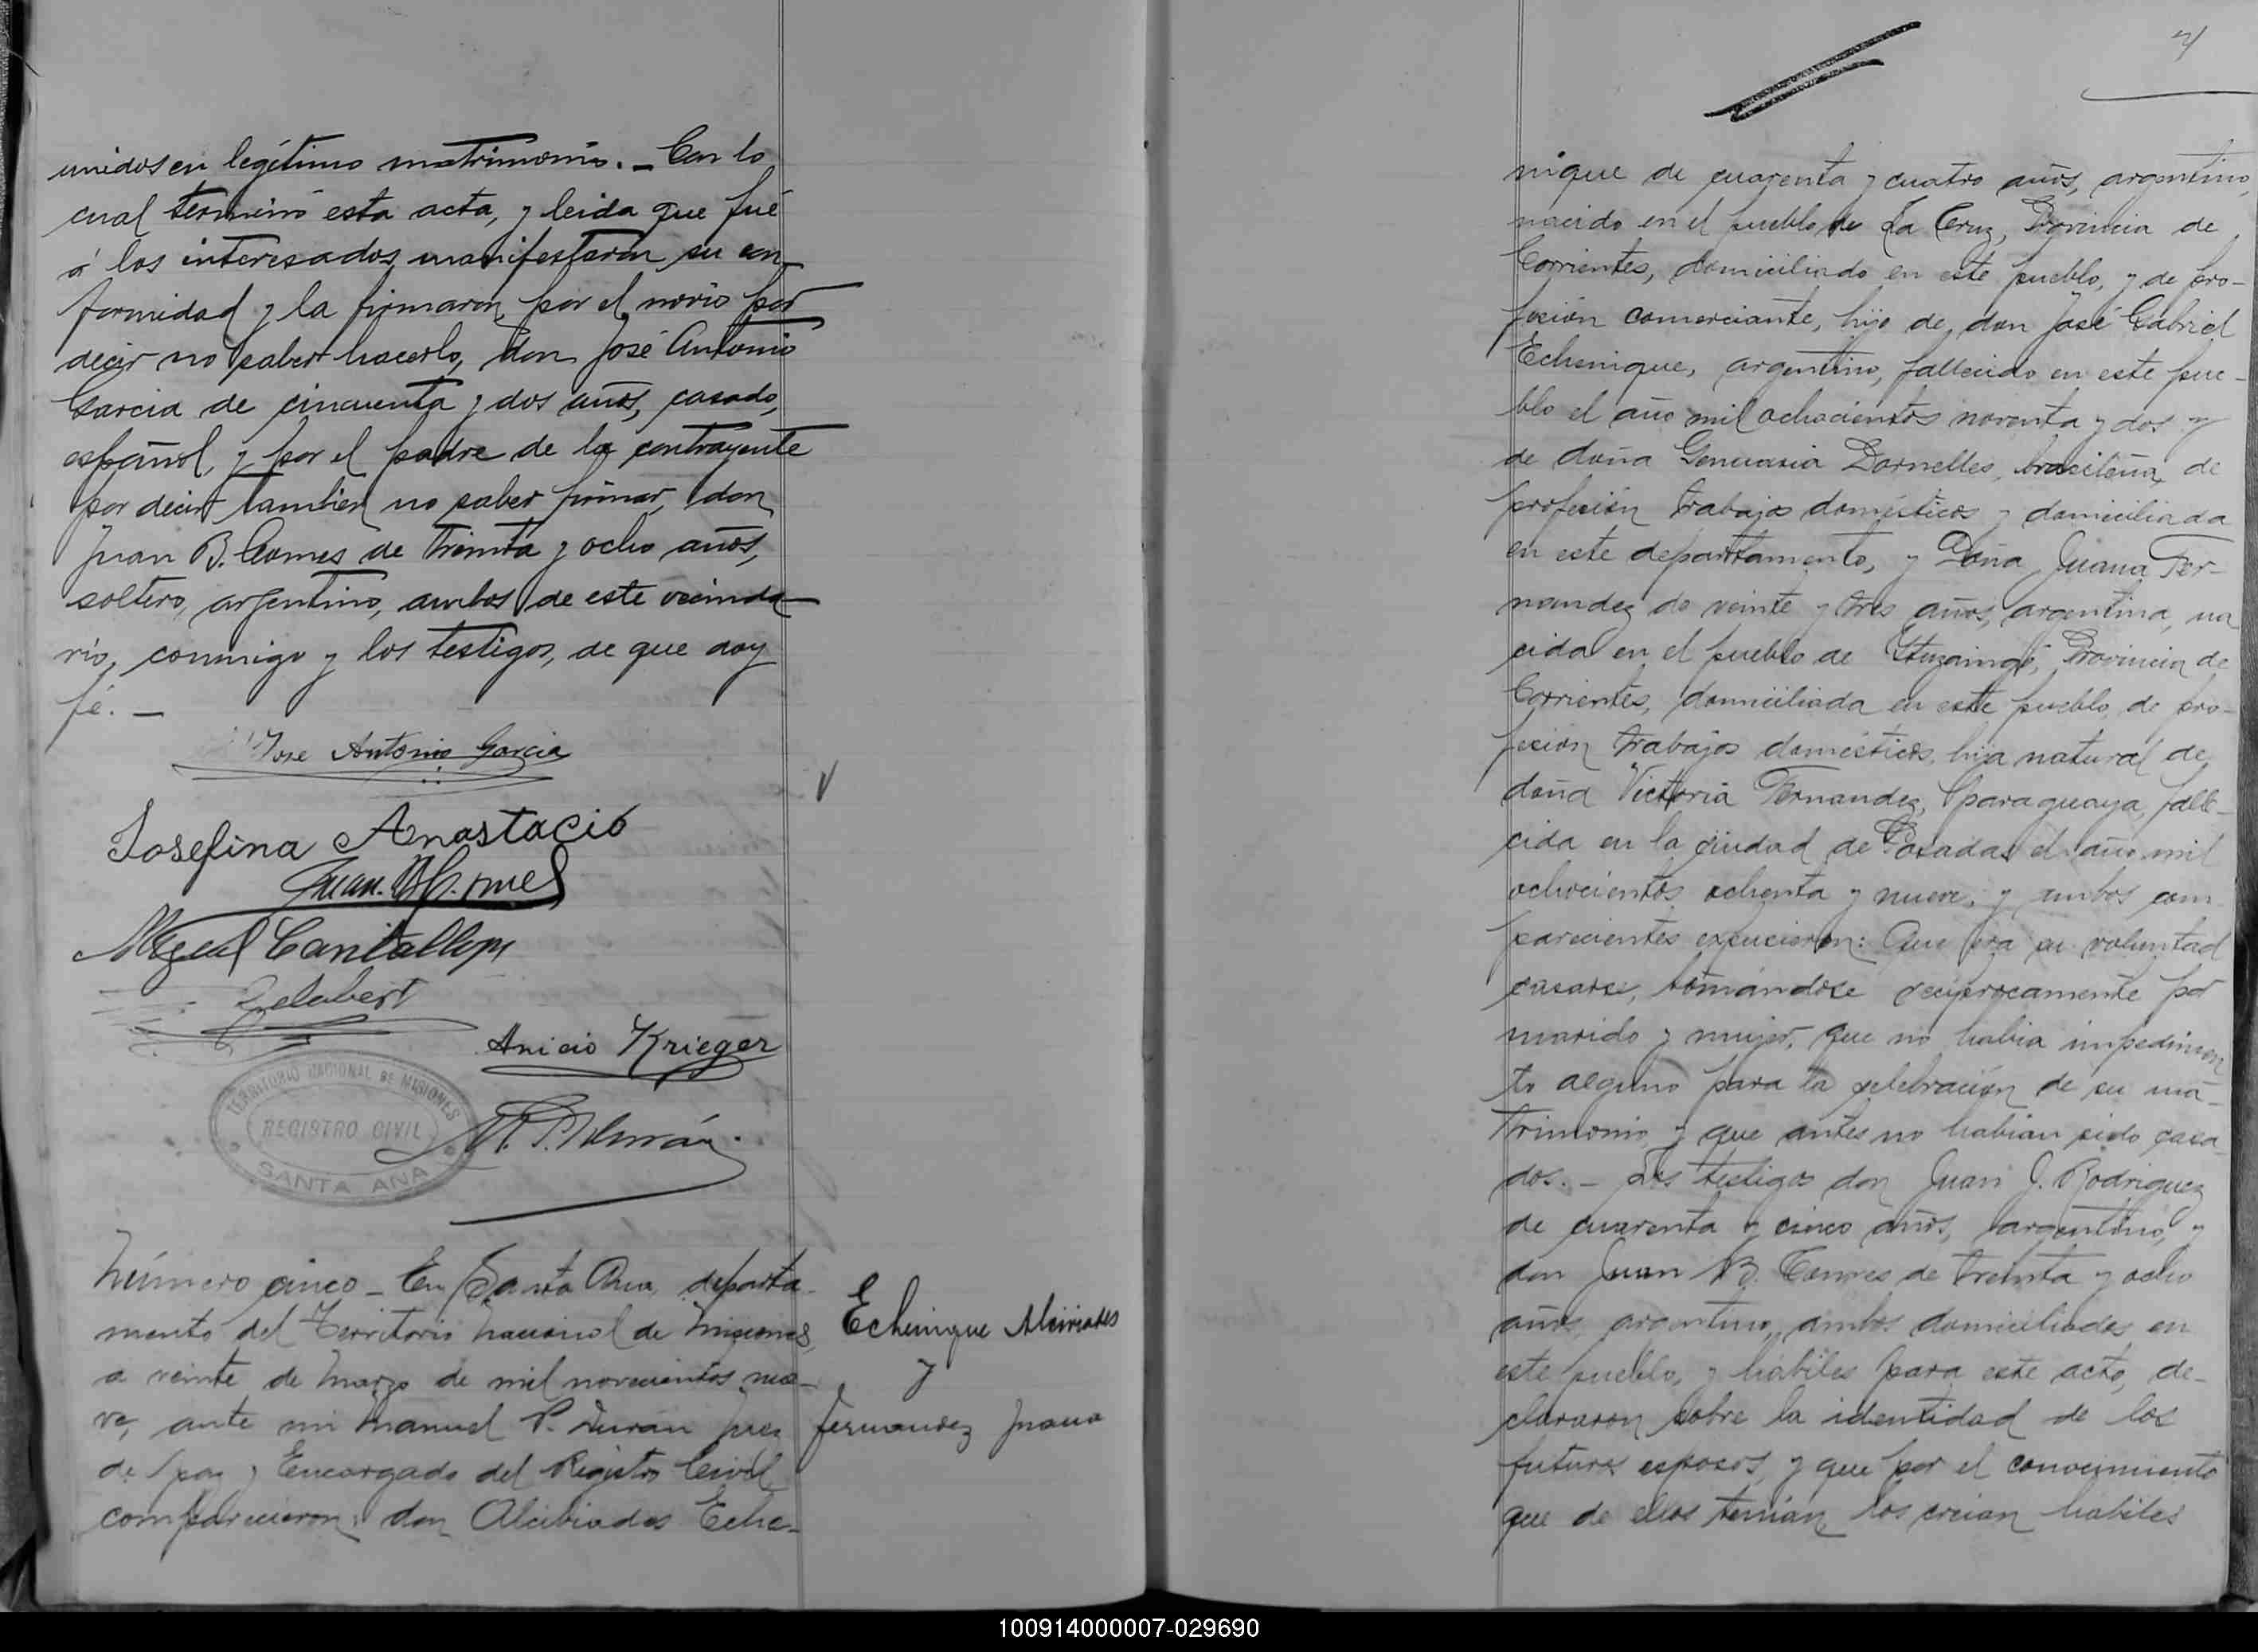 unidos en legítimo matrimonio. _ Con lo
cual terminó esta acta, y leida que fué
á los interesados manifestaron su con
formidad y la firmaron, por el novio por
decir no saber hacerlo, don José Antonio
Garcia de cincuenta y dos años, casado,
español, y por el padre de la contrayente
por decir tambien no saber firmar, don
Juan B. Comes de treinta y ocho años,
soltero, argentino, ambos de este vecinda
rio, conmigo y los testigos, de que doy
fé. _
Jose Antonio Garcia
Josefina Anastacio
Juan B.
Miguel Cantallops
Gelabert
Anicio Krieger
M. P. Durán.
TERRITORIO NACIONAL DE MISIONES
REGISTRO CIVIL
SANTA ANA
Número cinco _ En Santa Ana, departa
mento del Territorio Nacional de Misiones,
a veinte de Marzo de mil novecientos nue
ve, ante mi Manuel P. Durán Juez
de paz y Encargado del Registro Civil
comparecieron: don Alcibiades Eche-
Echenique Alcibiades
y
Fernandez Juana
nique de cuarenta y cuatro años, argentino,
nacido en el pueblo de La Cruz, Provincia de
Corrientes, domiciliado en este pueblo, y de pro-
fesión comerciante, hijo de don José Gabriel
Echenique, argentino, fallecido en este pue-
blo el año mil ochocientos noventa y dos y
de doña Dornelles, brasileña, de
profesión trabajos domésticos y domiciliada
en este departamento, y Doña Juana Fer-
nandez de veinte y tres años, argentina, na
cida en el pueblo de Ituzaingó, Provincia de
Corrientes, domiciliada en este pueblo, de pro-
fesión trabajos domésticos, hija natural de
doña Victoria Fernandez, paraguaya, falle-
cida en la ciudad de Posadas el año mil
ochocientos ochenta y nueve; y ambos com
parecientes expusieron: Que era su voluntad
casarse, tomándose reciprocamente por
marido y mujer, que no habia impedimen
to alguno para la celebración de su ma-
trimonio y que antes no habian sido casa
dos. _ Los testigos don Juan J. Rodriguez
de cuarenta y cinco años, argentino, y
don Juan B. Comes de treinta y ocho
años, argentino, ambos domiciliados en
este pueblo, y hábiles para este acto, de-
clararon sobre la identidad de los
futuros esposos, y que por el conocimiento
que de ellos tenían, los creian habiles
100914000007-029690